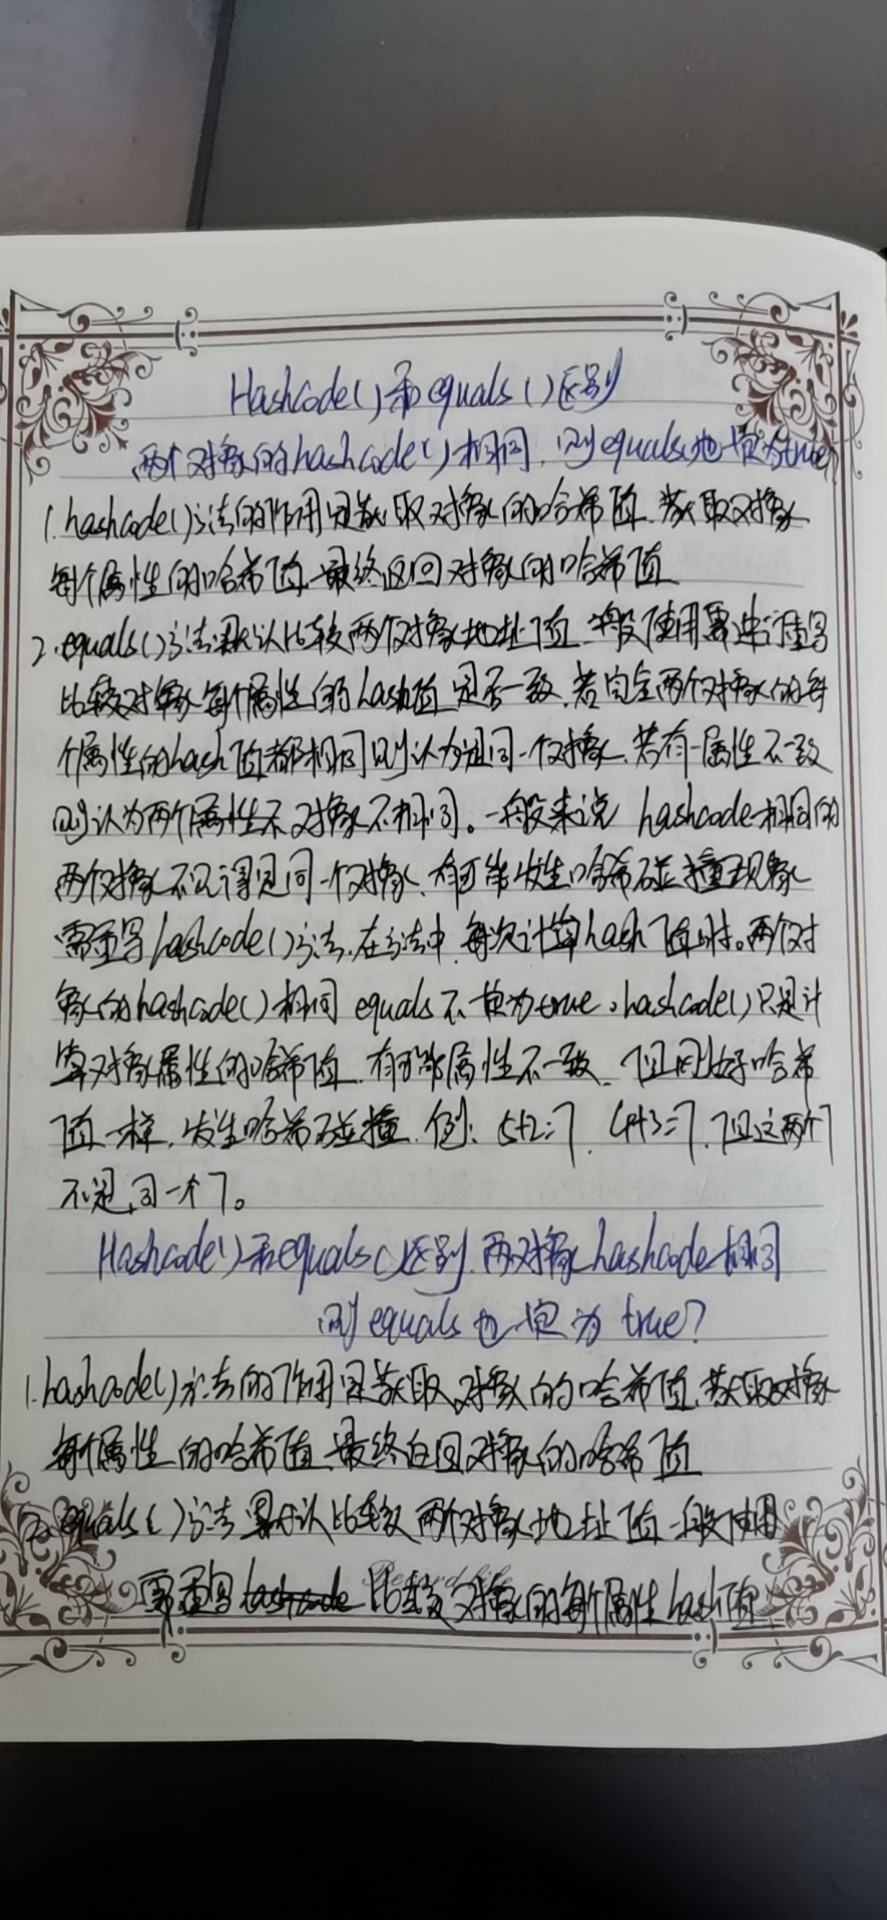 Hashcode()和equals()区别
两个对象的hashcode()相同,则equals也恒为true
1.hashcode()方法的作用是获取对象的哈希值,获取对象
每个属性的哈希值,最终返回对象的哈希值
2.equals()方法默认比较两个对象地址值,一般使用需进行重写
比较对象每个属性的hash值是否一致,若内容两个对象的每
个属性的hash值都相同则认为是同一个对象,若有一属性不一致
则认为两个属性不对象不相同。一般来说hashcode相同的
两个对象不见得是同一个对象,有可能发生哈希碰撞现象
需重写hashcode()方法,在方法中,每次计算hash值时。两个对
象的hashcode()相同equals不恒为true。hashcode()只是计
算对象属性的哈希值,有可能属性不一致,但刚好哈希
值一样,发生哈希碰撞,例:5+2=7,4+3=7,但这两个7
不是同一个7。
Hashcode()和equals()区别,两对象hashcode相同
则equals也恒为true?
1.hashcode()方法的作用是获取对象的哈希值,获取对象
每个属性的哈希值,最终返回对象的哈希值
2.equals()方法默认比较两个对象地址值一般使用
需重写 比较对象的每个属性hash值